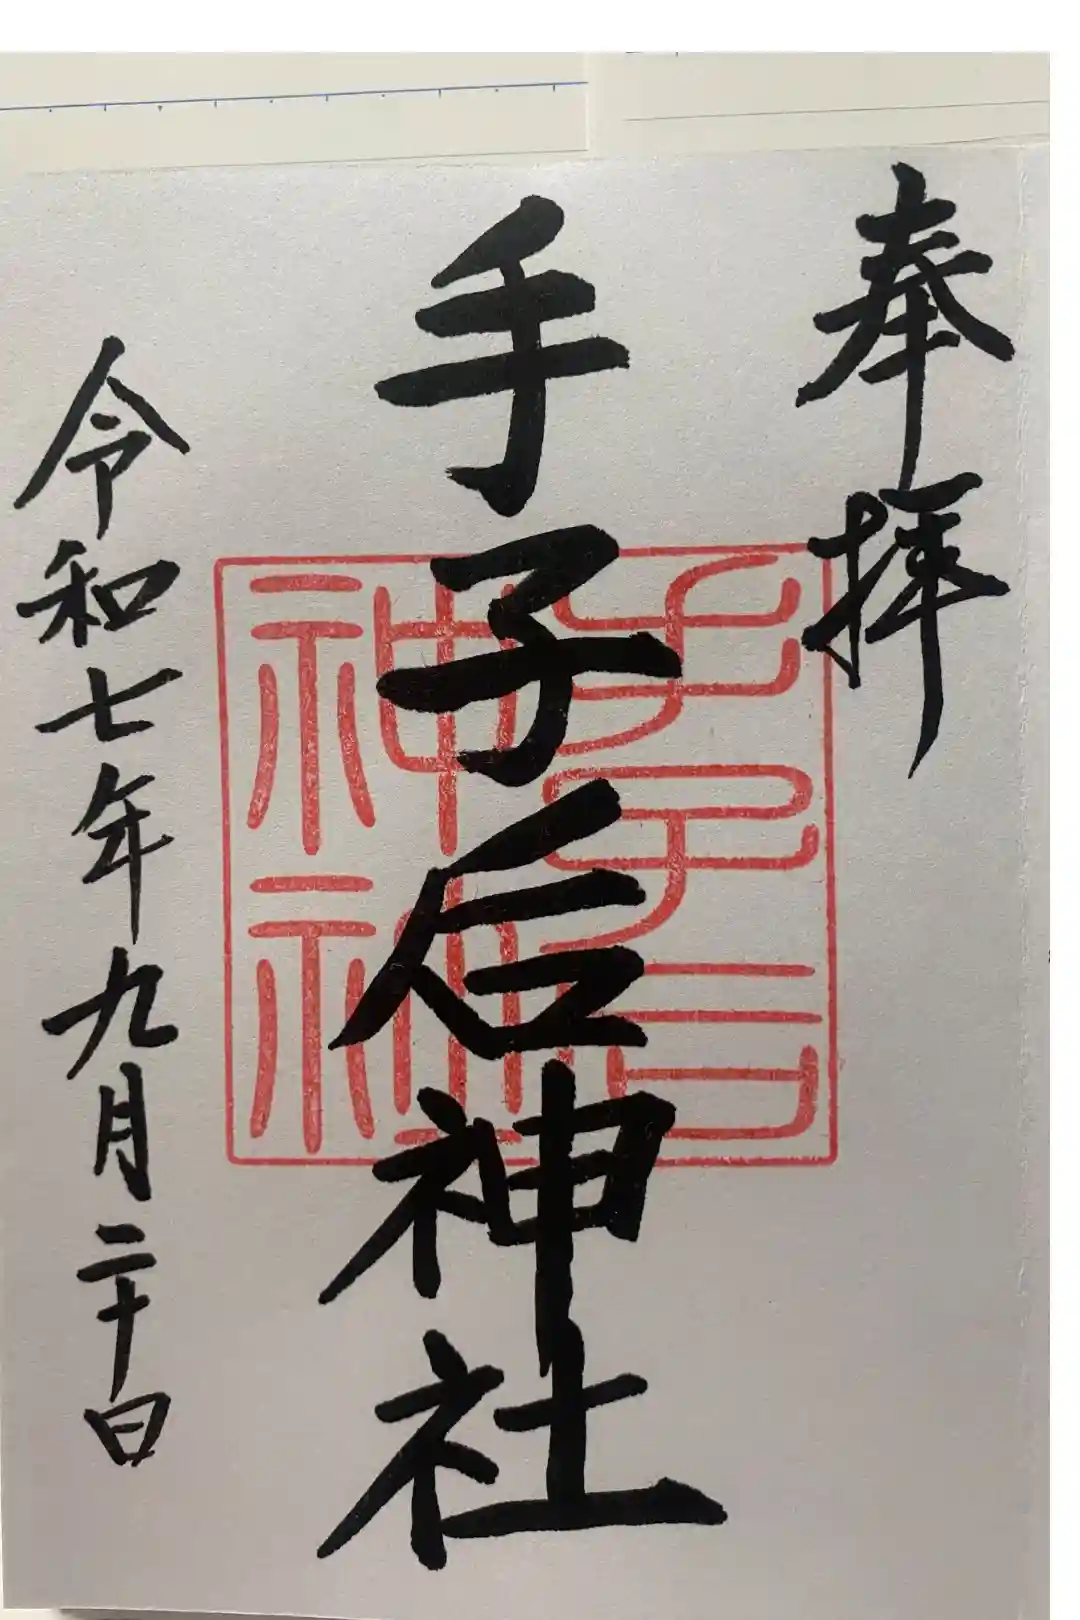 奉拝
手子后神社
令和七年九月二十日
手子后神社